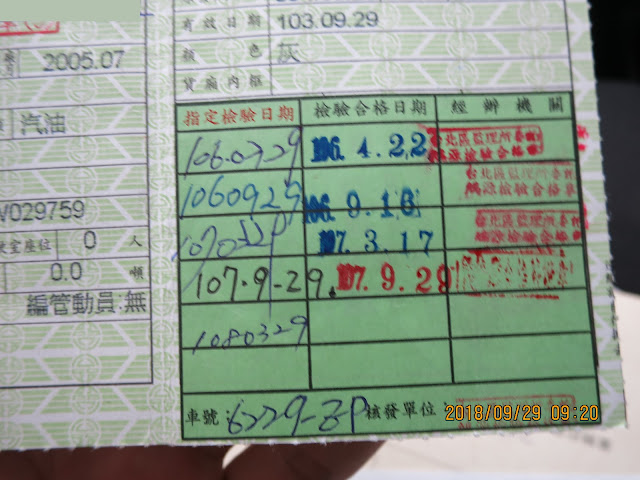 有效日期 103.09.29
2005.07
顏色 灰
貨廂內框
指定檢驗日期 檢驗合格日期 經辦機關
汽油
1060329 106.4.22 台北區監理所委
源檢驗合格章
1060929 106.9.16 台北區監理所委
源檢驗合格章
V029759
107.3.17 台北區監理所委
源檢驗合格
座位 0 人
0.0 噸
107.9-29. 107.9.29
編管動員:無
1080329
車號: 6229-ZP 核發單位:
2018/09/29 09:20